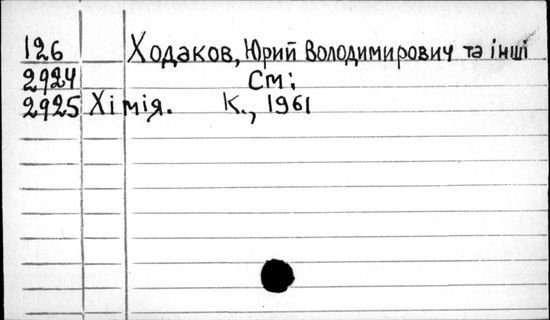 126 Ходаков, Юрий Володимирович та інші
2924 См:
2925 Хімія. К., 1961